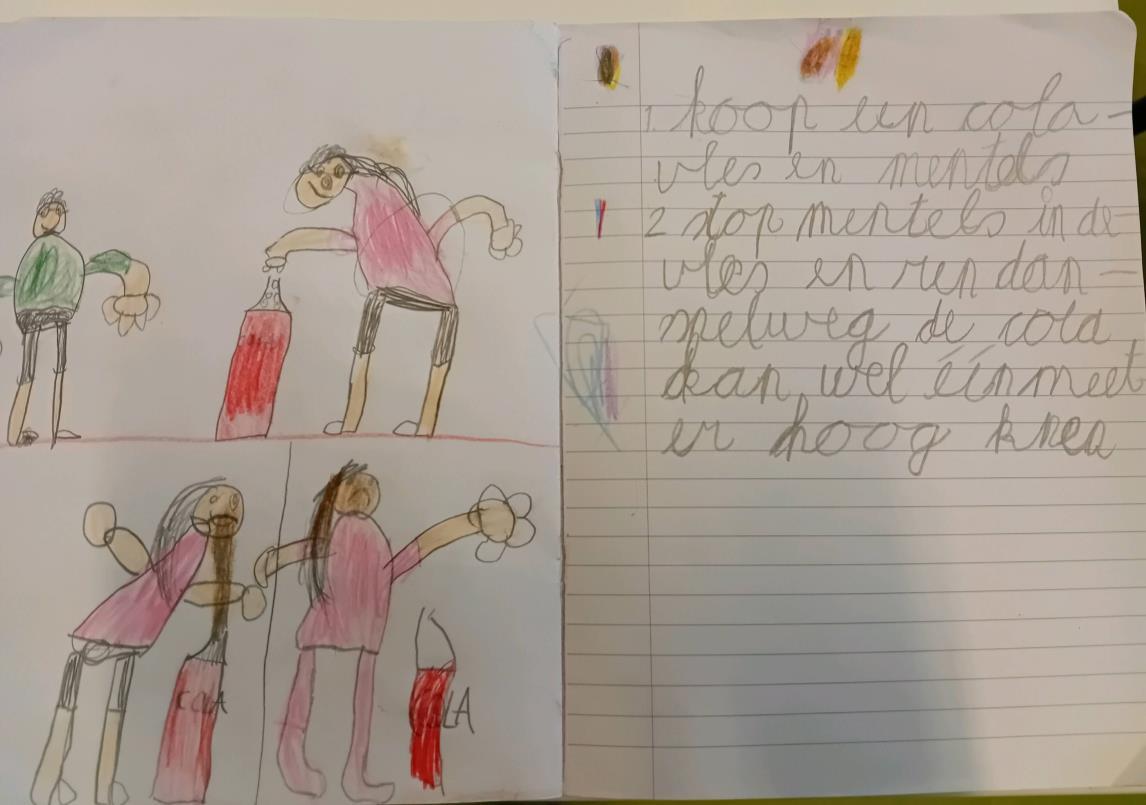 COLA
COLA
1. koop een cola-
vles en mentels
2 stop mentels in de-
vles en ren dan-
snelweg de cola
kan wel éénmeet
er hoog